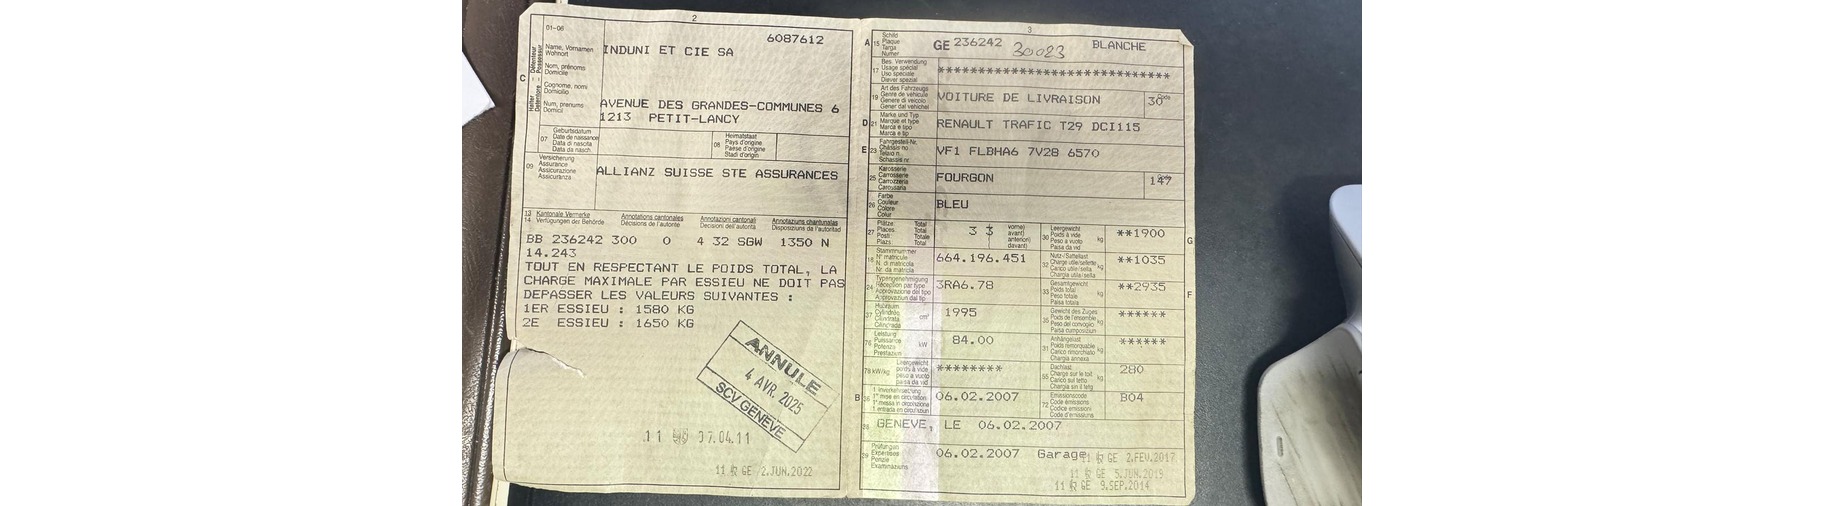 2
01-06
6087612
C
Détenteur Possessor
Halter Detentore
Name, Vornamen
Wohnort
Nom, prénoms
Domicile
Cognome, nomi
Domicilio
Num, prenums
Domicil
INDUNI ET CIE SA
AVENUE DES GRANDES-COMMUNES 6
1213 PETIT-LANCY
07
Geburtsdatum
Date de naissance
Data di nascita
Data da nasch.
08
Heimatstaat
Pays d'origine
Paese d'origine
Stadi d'origin
09
Versicherung
Assurance
Assicurazione
Assicuranza
ALLIANZ SUISSE STE ASSURANCES
13 Kantonale Vermerke Annotations cantonales Annotazioni cantonali Annotaziuns chantunalas
14 Verfügungen der Behörde Décisions de l'autorité Decisioni dell'autorità Disposiziuns da l'autoritad
BB 236242 300 0 4 32 SGW 1350 N
14.243
TOUT EN RESPECTANT LE POIDS TOTAL, LA
CHARGE MAXIMALE PAR ESSIEU NE DOIT PAS
DEPASSER LES VALEURS SUIVANTES :
1ER ESSIEU : 1580 KG
2E ESSIEU : 1650 KG
ANNULE
4 AVR. 2025
SCV GENEVE
11 07.04.11
11 GE 2.JUN.2022
3
A 15
Schild
Plaque
Targa
Numer
GE 236242 30023 BLANCHE
17
Bes. Verwendung
Usage spécial
Uso speciale
Diever spezial
**************************
19
Art des Fahrzeugs
Genre de véhicule
Genere di veicolo
Gener dal vehichel
VOITURE DE LIVRAISON
Code
30
D 21
Marke und Typ
Marque et type
Marca e tipo
Marca e tip
RENAULT TRAFIC T29 DCI115
E 23
Fahrgestell-Nr.
Châssis no
Telaio n.
Schassis nr.
VF1 FLBHA6 7V28 6570
25
Karosserie
Carrosserie
Carrozzeria
Carrossaria
FOURGON
Code
147
26
Farbe
Couleur
Colore
Colur
BLEU
27
Plätze Total
Places Total
Posti Totale
Plazs Total
3 3
vorne)
avant)
anteriori)
davant)
30
Leergewicht
Poids à vide
Peso a vuoto
Paisa da vid
kg
**1900
G
18
Stammnummer
N° matricule
N. di matricola
Nr. da matricla
664.196.451
32
Nutz-/Sattellast
Charge utile/sellette
Carico utile/sella
Chargia utila/sella
kg
**1035
24
Typengenehmigung
Réception par type
Approvazione del tipo
Approvaziun dal tip
3RA6.78
33
Gesamtgewicht
Poids total
Peso totale
Paisa totala
kg
**2935
F
37
Hubraum
Cylindrée
Cilindrata
Cilindrada
cm³
1995
35
Gewicht des Zuges
Poids de l'ensemble
Peso del convoglio
Paisa cumposiziun
kg
******
76
Leistung
Puissance
Potenza
Prestaziun
kW
84.00
31
Anhängelast
Poids remorquable
Carico rimorchiato
Chargia annexa
kg
******
78 kW/kg
Leergewicht
poids à vide
peso a vuoto
paisa da vid
********
55
Dachlast
Charge sur le toit
Carico sul tetto
Chargia sin il tetg
kg
280
B 36
1. Inverkehrsetzung
1re mise en circulation
1a messa in circolazione
1. entrada en circulaziun
06.02.2007
72
Emissionscode
Code émissions
Codice emissioni
Code d'emissiuns
B04
28
GENEVE, LE 06.02.2007
29
Prüfungen
Expertises
Perizie
Examinaziuns
06.02.2007 Garage
11 GE 2.FEV.2017
11 GE 5.JUN.2019
11 GE 9.SEP.2014